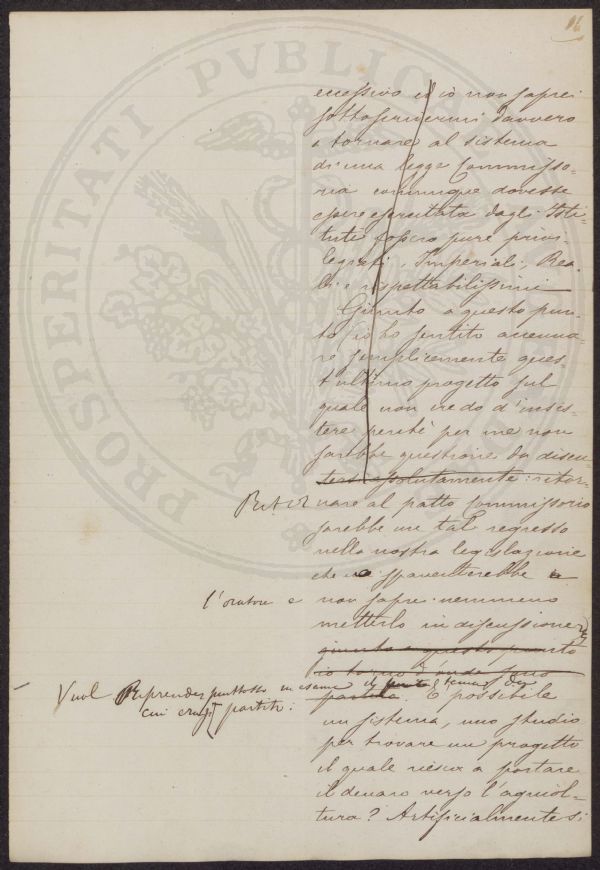 16
eccessivo ed io non saprei
sottoscrivermi davvero
a tornare al sistema
di una legge Commisso-
ria comunque dovesse
essere esercitata dagli Isti-
tuti fossero pure privi-
legiati, Imperiali, Rea-
li e rispettabilissimi
Giunto a questo pun-
to io ho sentito accenna-
re semplicemente ques-
t'ultimo progetto sul
quale non credo d'insis-
tere perché per me non
sarebbe questione da discu-
tersi assolutamente: ritor-
nare al patto Commissorio
sarebbe un tal regresso
nella nostra legislazione
che spaventerebbe
l'oratore e non sapre nemmeno
metterlo in discussione
giunto a questo punto
io torno d'onde sono
Vuol Riprender piuttosto in esame il tema di
cui erasi partiti:
partito. È possibile
un sistema, uno studio
per trovare un progetto
il quale riesca a portare
il denaro verso l'agricol-
tura? Artificialmente si
PROSPERITATI PVBLICAE